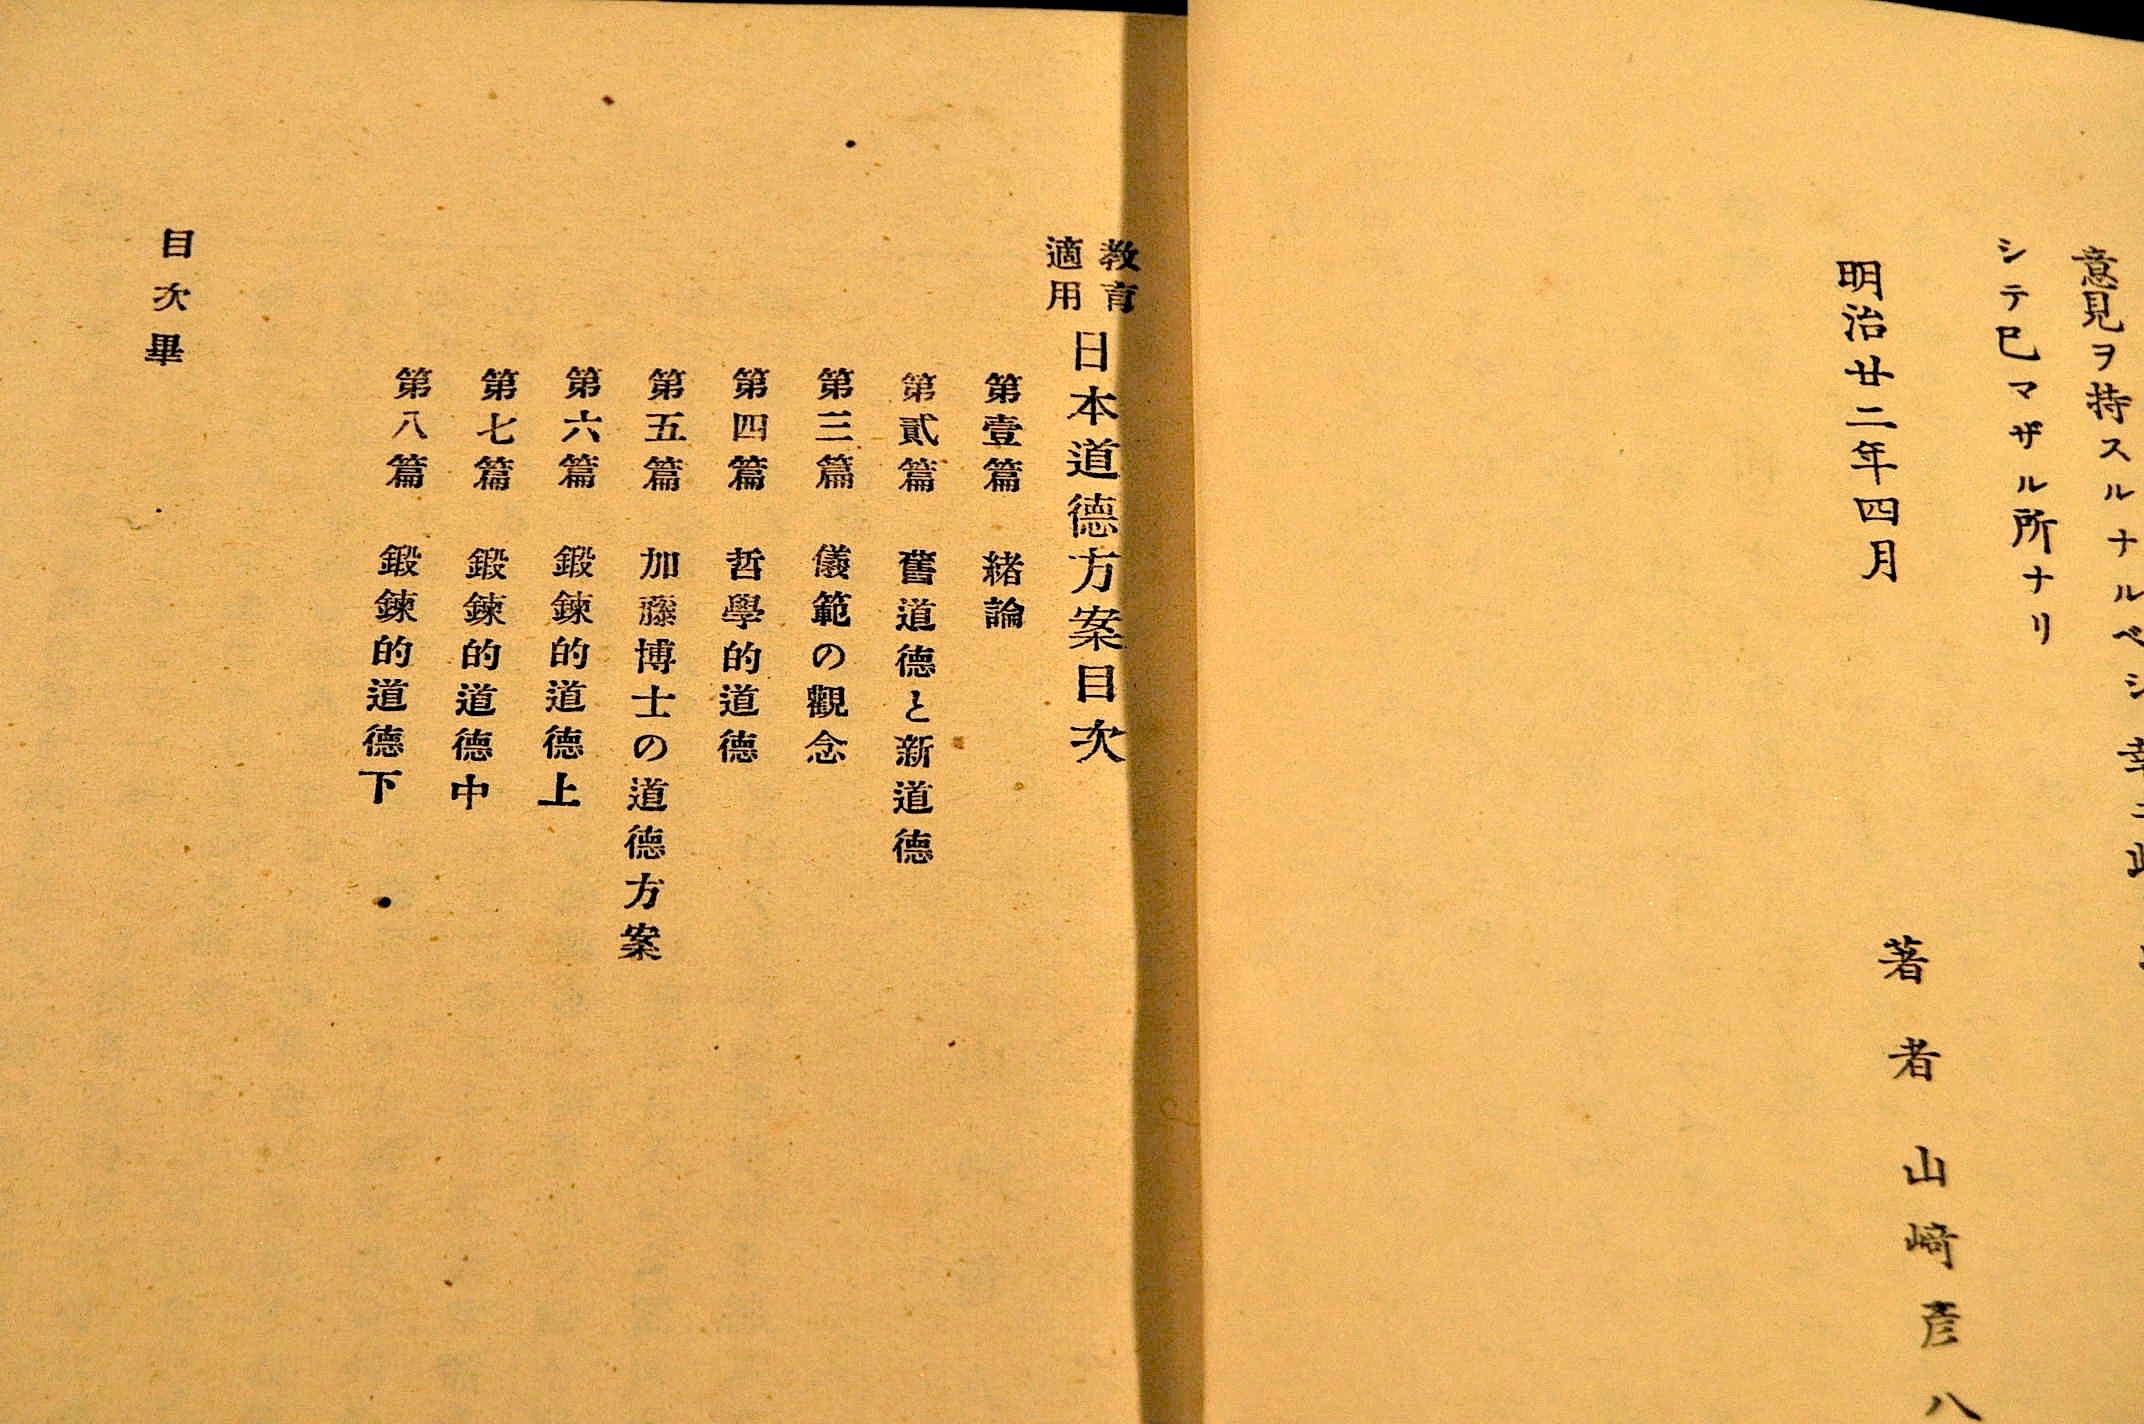 意見ヲ持スルナルベシ幸ニ此
シテ已マザル所ナリ
明治廿二年四月
著者山﨑彦八
教育
適用
日本道德方案目次
第壹篇 緒論
第貳篇 舊道德と新道德
第三篇 儀範の觀念
第四篇 哲學的道德
第五篇 加藤博士の道德方案
第六篇 鍛鍊的道德上
第七篇 鍛鍊的道德中
第八篇 鍛鍊的道德下
目次畢